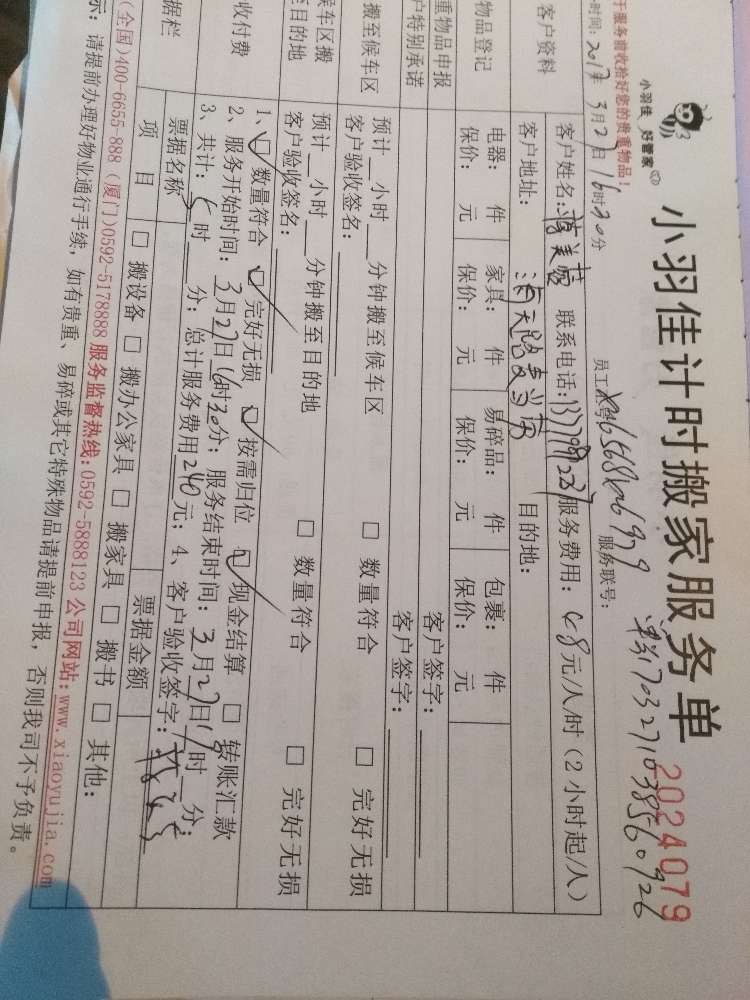 小羽佳 好管家
小羽佳计时搬家服务单
2024079
于服务前收拾好您的贵重物品!
时间: 2017年 3月27日 16时30分
员工 服务联号:
客户资料
客户姓名: 联系电话: 服务费用: 48元/人/时(2小时起/人)
客户地址: 目的地:
物品登记
电器: 件 家具: 件 易碎品: 件 包裹: 件
保价: 元 保价: 元 保价: 元 保价: 元
重物品申报 客户签字:
户特别承诺 客户签字:
搬至候车区
预计__小时__分钟搬至候车区 □ 数量符合 □ 完好无损
客户验收签名:
候车区搬
至目的地
预计__小时__分钟搬至目的地 □ 数量符合 □ 完好无损
客户验收签名:
收付费
1、☑ 数量符合 ☑ 完好无损 ☑ 按需归位 ☑ 现金结算 □ 转账汇款
2、服务开始时间: 3月27日16时30分; 服务结束时间: 3月27日19时__分;
3、共计: 5时__分; 总计服务费用240元; 4、客户验收签字:
据栏
票据名称 票据金额
项 目 □ 搬设备 □ 搬办公家具 □ 搬家具 □ 搬书 □ 其他:
(全国)400-6655-888 (厦门)0592-5178888 服务监督热线:0592-5888123 公司网站:www.xiaoyujia.com
示: 请提前办理好物业通行手续, 如有贵重、易碎或其它特殊物品请提前申报, 否则我司不予负责。